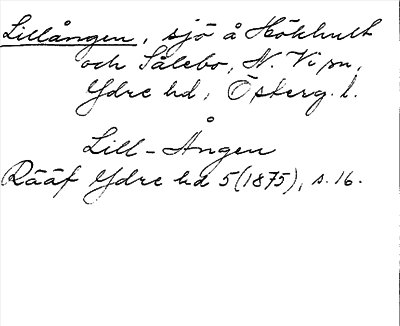 Lillången, sjö å Hökhult
och Sålebo, N. Vi sn,
Ydre hd, Österg. l.
Lill-Ången
Rääf Ydre hd 5(1875), s. 16.